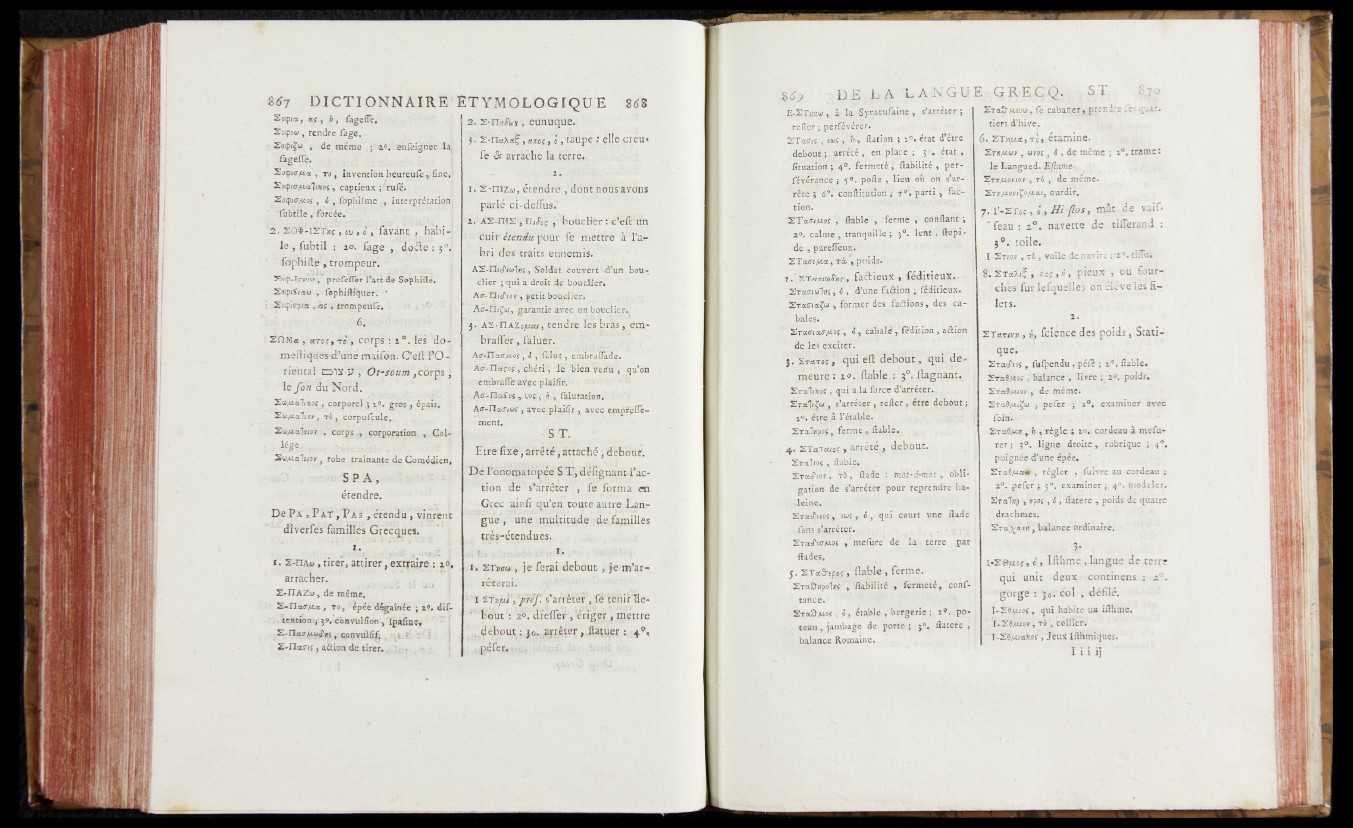 867 DICTIONNAIRE ÉTYMOLOGIQUE 868
Σοφια, ας, ἡ, ſageſſe.
Σοφοω, rendre ſage.
Σοφιζω, de même ; 2°. enſeigner la
ſageſſe.
Σοφισμα, το, invention heureuſe, fine.
Σοφισμαʹικος, captieux ; ruſé.
Σοφισμος, ὁ, ſophiſme, interprétation
ſubtile, forcée.
2. ΣΟΦ-ΙΣΤης, ου, ὁ, ſavant, habi-
le, ſubtil : 2°. ſage, docte : 3°.
ſophiſte, trompeur.
Σοφ-Ιστευω, profeſſer l'art de Sophiſte.
Σοφιστιαω, ſophiſtiquer.
Σοφιστρια, ας, trompeuſe.
6.
ΣΩΜα, ατος, το, corps : 2°. les do-
meſtiques d'une maiſon. C'eſt l'O-
riental עצום, Ot-soum, corps,
le ſon du Nord.
Σωμαʹικος, corporel ; 2°. gros, épais.
Σωμαʹιον, τὸ, corpuſcule.
Σωμαʹειον, corps, corporation, Col-
lége.
Σωμαʹιον, robe traînante de Comédien.
SPA,
étendre.
De PA, PAT, PAs, étendu, vinrent
diverſes familles Grecques.
1.
1. Σ-ΠΑω, tirer, attirer, extraire : 2°.
arracher.
Σ-ΠΑΖω, de même.
Σ-Πασμα, το, épée dégaînée ; 2°. diſ-
tention ; 3°. convulſion, ſpaſme.
Σ-Πασμωδης, convulſif.
Σ-Πασις, action de tirer.
2. Σ-Παδων, eunuque.
3. Σ-Παλαξ, ακος, ὁ, taupe : elle creu-
ſe & arrache la terre.
2.
1. Σ-ΠΙΖω, étendre, dont nous avons
parlé ci-deſſus.
2. ΑΣ-ΠΙΣ, Πιδος, bouclier : c'eſt un
cuir étendu pour ſe mettre à l'a-
bri des traits ennemis.
ΑΣ-Πιδιωʹης, Soldat couvert d'un bou-
clier ; qui a droit de bouclier.
Ασ-Πιδιον, petit bouclier.
Ασ-Πιζω, garantir avec un bouclier.
3. ΑΣ-ΠΑΖομαι, tendre les bras, em-
braſſer, ſaluer.
Ασ-Πασμος, ὁ, ſalut, embraſſade.
Ασ-Παςος, chéri, le bien venu, qu'on
embraſſe avec plaiſir.
Ασ-Παςυς, υος, ἡ, ſalutation.
Ασ-Πασιως, avec plaiſir, avec empreſſe-
ment.
ST.
Etre fixe, arrêté, attaché, debout.
De l'onomatopée ST, déſignant l'ac-
tion de s'arrêter, ſe forma en
Grec ainſi qu'en toute autre Lan-
gue, une multitude de familles
très-étendues.
1.
1. ΣΤησω, je ſerai debout, je m'ar-
rêterai.
Ι ΣΤημι, préſ. s'arrêter, ſe tenir de-
bout : 2°. dreſſer, ériger, mettre
debout : 3o. arrêter, ſtatuer : 4°.
péſer.
869 DE LA LANGUE GRECQ. ST 870
Ε-ΣΤινων, à la Syracuſaine, s'arrêter ;
reſter ; perſévérer.
ΣΤασις, εως, ἡ, ſtation ; 2°. état d'être
debout ; arrêté, en place ; 3°. état,
ſituation ; 4°. fermeté, ſtabilité, per-
ſévérance ; 5°. poſte, lieu où on s'ar-
rête ; 6°. conſtitution ; 7°. parti, fac-
tion.
ΣΤασιμος, ſtable, ferme, conſtant ;
2°. calme, tranquille ; 3°. lent, ſtupi-
de, pareſſeux.
ΣΤασιμα, τὰ, poids.
2. ΣΤασιωδης, factieux, ſéditieux.
Στασιωʹος, ὁ, d'une faction ; ſéditieux.
Στασιαζω, former des factions, des ca-
bales.
Στασιασμος, ὁ, cabale, ſédition, action
de les exciter.
3. Στατος, qui eſt debout, qui de-
meure : 2°. ſtable : 3°. ſtagnant.
Σταʹικος, qui a la force d'arrêter.
Σταʹιζω, s'arrêter, reſter, être debout ;
2°. être à l'étable.
Σταʹηρος, ferme, ſtable.
4. ΣΤαταιος, arrêté, debout.
Σταʹιος, ſtable.
Σταδιον, τὸ, ſtade : mot-à-mot, obli-
gation de s'arrêter pour reprendre ha-
leine.
Σταδιευς, εως, ὁ, qui court une ſtade
ſans s'arrêter.
Σταδισμος, meſure de la terre par
ſtades.
5. ΣΤαθηρος, ſtable, ferme.
Σταθηροʹης, ſtabilité, fermeté, conſ-
tance.
Σταθμος, ὁ, étable, bergerie ; 2°. po-
teau, jambage de porte ; 3°. ſtatere,
balance Romaine.
Σταθμευω, ſe cabaner, prendre ſes quar-
tiers d'hive.
6. ΣΤημα, τὸ, étamine.
Στημων, ονος, ὁ, de même ; 2°. trame :
le Langued. Eſtame.
Στημονιον, τὸ, de même.
Στημονιζομαι, ourdir.
7. Ι'-ΣΤος, ὁ, Hi-ſtos, mât de vaiſ-
ſeau : 2°. navette de tiſſerand :
3°. toile.
Ι Στιον, τὸ, voile de navire ; 2°. tiſſu.
8. ΣΤαλιξ, κος, ὁ, pieux, ou four-
ches ſur leſquelles on éléve les fi-
lets.
2.
ΣΤατικη, ἡ, ſcience des poids, Stati-
que.
Σταδιος, ſuſpendu, péſé ; 2°. ſtable.
Σταθμος, balance, livre ; 2°. poids.
Σταθμιον, de même.
Σταθμιζω, peſer ; 2°. examiner avec
ſoin.
Σταθμη, ἡ, régle ; 2°. cordeau à meſu-
rer ; 3°. ligne droite, rubrique ; 4°.
poignée d'une épée.
Σταθμαω, régler, ſuivre au cordeau ;
2°. peſer ; 3°. examiner ; 4°. modeler.
Σταʹηρ, ηρος, ὁ, ſtatere, poids de quatre
drachmes.
Σταχανη, balance ordinaire.
3.
Ι-ΣΘμος, ὁ, Iſthme, langue de terre
qui unit deux continens ; 2°.
gorge : 3o. col, défilé.
Ι-Σθμιος, qui habite un iſthme.
Ι-Σθμιον, τὸ, collier.
Ι-Σθμιακος, Jeux Iſthmiques.
I i i ij